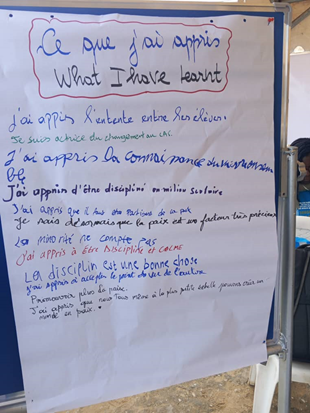 Ce que j'ai appris
What I have learnt
j'ai appris l'entente entre les élèves.
Je suis actrice du changement au
J'ai appris la connaissance
J'ai appris d'être discipliné en milieu scolaire
J'ai appris que il faut être de la paix
Je sais désormais que la paix est un facteur très
La minorité ne compte pas
j'ai appris à être DISCIPLINE et
Les disciplin est une bonne chose
j'ai appris à accepter le point de vue de l'autre
Promouvoir plus la paix.
J'ai appris que nous même à la plus petite échelle pouvons créer un
monde en paix.